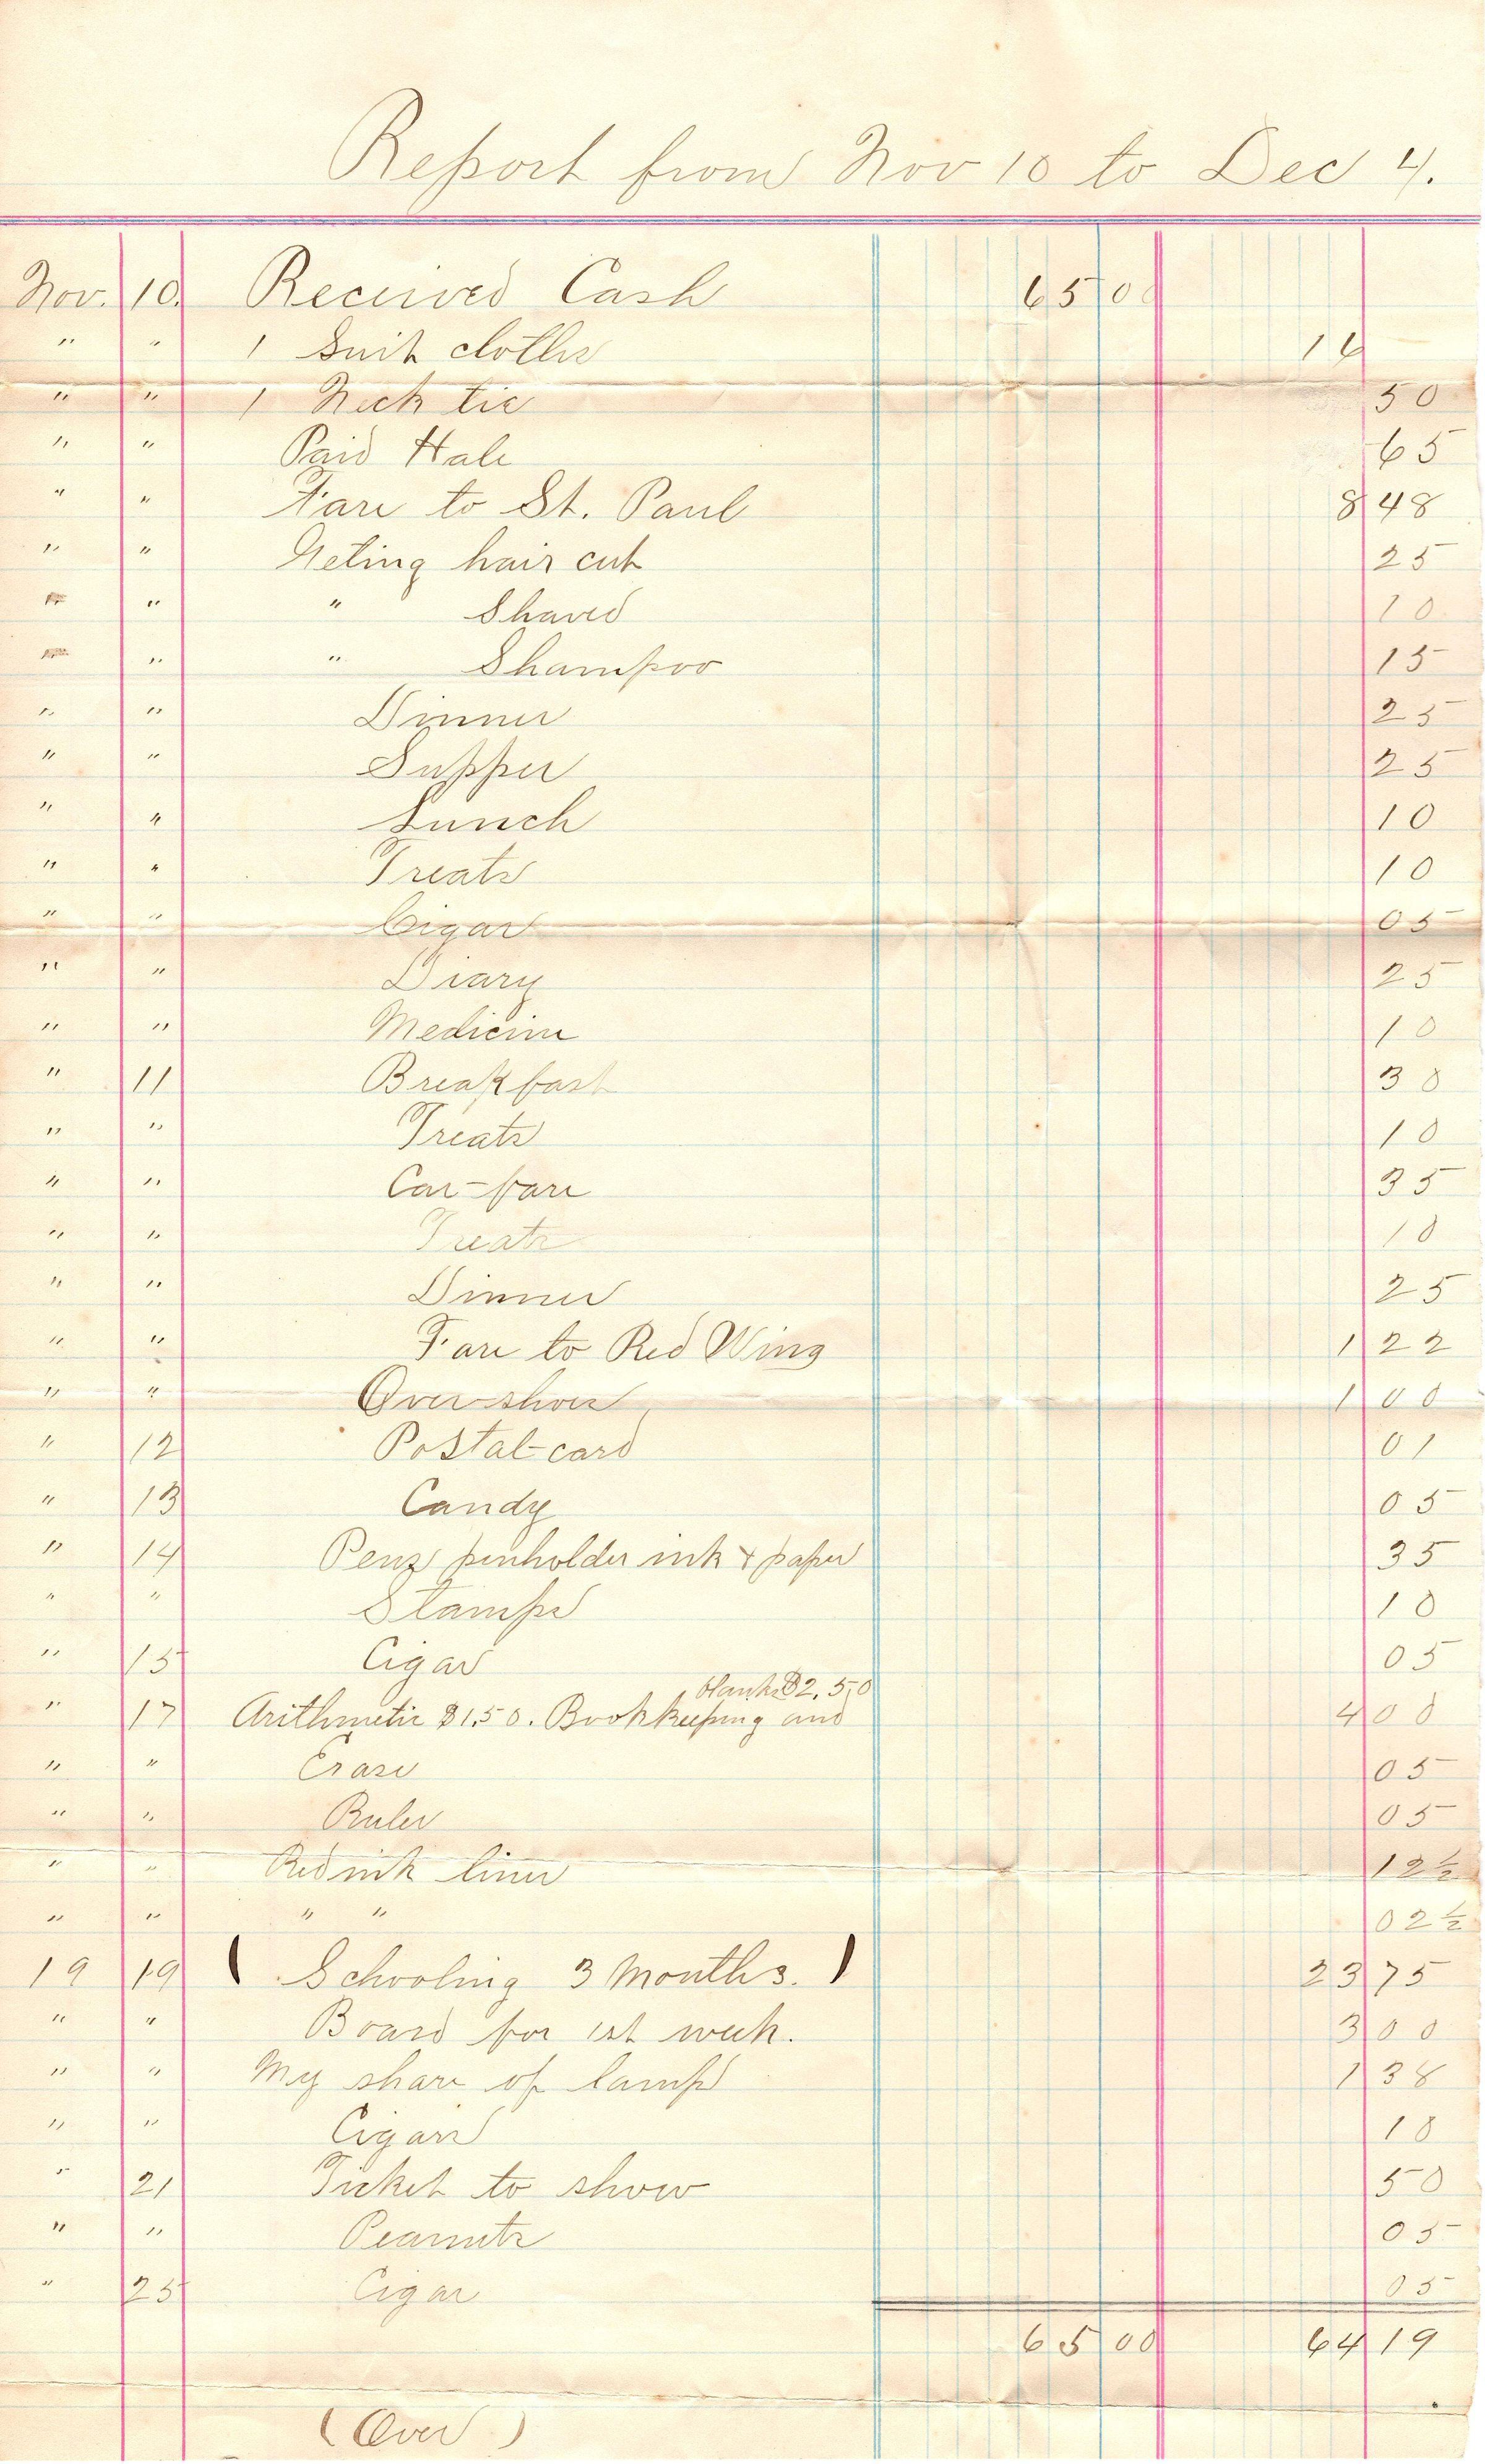 Report from Nov 10 to Dec 4.
Nov. 10. Received Cash 65 00
" " 1 Suit cloths 16
" " 1 Neck tie 50
" " Paid Hale 65
" " Fare to St. Paul 8 48
" " Geting hair cut 25
" " " Shaved 10
" " " Shampoo 15
" " Dinner 25
" " Supper 25
" " Lunch 10
" " Treats 10
" " Cigar 05
" " Diary 25
" " Medicine 10
" 11 Breakfast 30
" " Treats 10
" " Car-fare 35
" " Treats 10
" " Dinner 25
" " Fare to Red Wing 1 22
" " Over-shoes 1 00
" 12 Postal-card 01
" 13 Candy 05
" 14 Pens penholder ink & paper 35
" " Stamps 10
" 15 Cigar 05
blanks $2.50
" 17 Arithmetic $1.50. Bookkeeping and 4 00
" " Erase 05
" " Ruler 05
" " Red ink liner 12½
" " " " 02½
19 19 ( Schooling 3 Months. ) 23 75
" " Board for 1st week. 3 00
" " My share of lamp 1 38
" " Cigars 10
" 21 Ticket to show 50
" " Peanuts 05
" 25 Cigar 05
65 00 64 19
(Over)